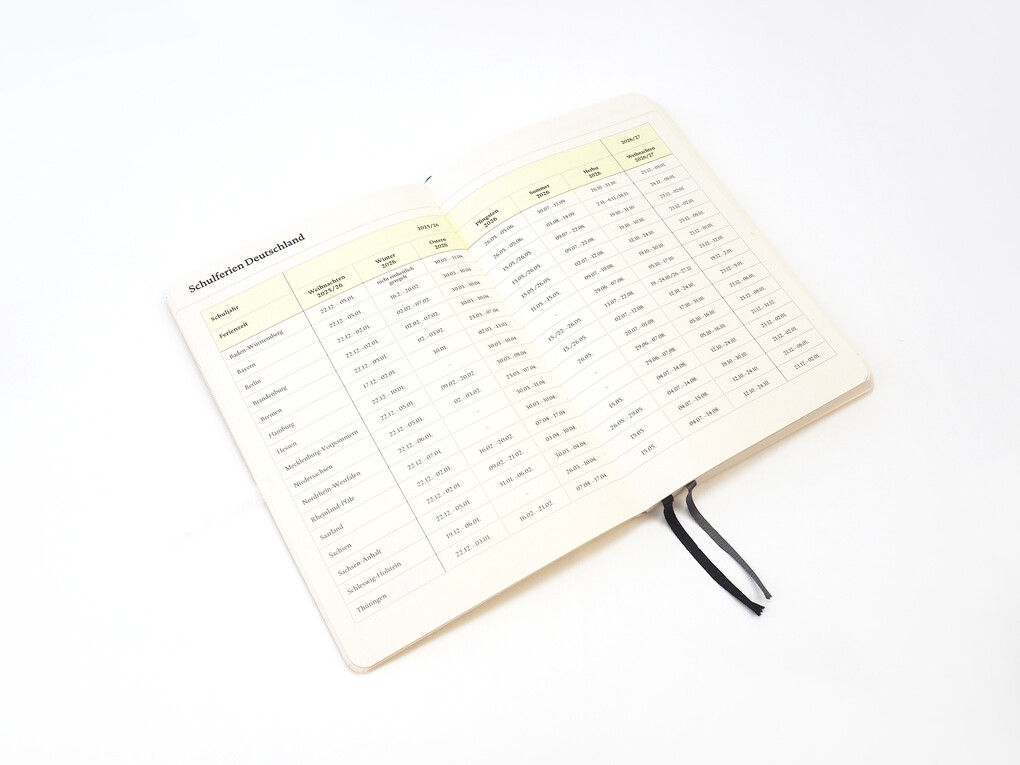 Schulferien Deutschland
Schuljahr 2025/26 2026/27
Ferienzeit Weihnachten 2025/26 Winter 2026 Ostern 2026 Pfingsten 2026 Sommer 2026 Herbst 2026 Weihnachten 2026/27
Baden-Württemberg 22.12. - 05.01. nicht einheitlich geregelt 30.03. - 11.04. 26.05. - 05.06. 30.07. - 12.09. 26.10. - 31.10. 23.12. - 09.01.
Bayern 22.12. - 05.01. 16.2. - 20.02. 30.03. - 10.04. 26.05. - 05.06. 03.08. - 14.09. 2.11. - 6.11./18.11 24.12. - 08.01.
Berlin 22.12. - 02.01. 02.02. - 07.02. 30.03. - 10.04. 15.05./26.05. 09.07. - 22.08. 19.10. - 31.10. 23.12. - 02.01.
Brandenburg 22.12. - 02.01. 02.02. - 07.02. 30.03. - 10.04. 15.05./26.05. 09.07. - 22.08. 19.10. - 30.10. 23.12. - 02.01.
Bremen 22.12. - 05.01. 02. - 03.02. 23.03. - 07.04. 15.05./26.05. 02.07. - 12.08. 12.10. - 24.10. 23.12. - 09.01.
Hamburg 17.12. - 02.01. 30.01. 02.03. - 13.03. 11.05. - 15.05. 09.07. - 19.08. 19.10. - 30.10. 21.12. - 01.01.
Hessen 22.12. - 10.01. - 30.03. - 10.04. - 29.06. - 07.08. 05.10. - 17.10. 23.12. - 12.01.
Mecklenburg-Vorpommern 22.12. - 05.01. 09.02. - 20.02. 30.03. - 08.04. 15./22. - 26.05. 13.07. - 22.08. 15. - 24.10/26. - 27.11 19.12. - 2.01.
Niedersachsen 22.12. - 05.01. 02. - 03.02. 23.03. - 07.04. 15./26.05. 02.07. - 12.08. 12.10. - 24.10. 23.12. - 9.01.
Nordrhein-Westfalen 22.12. - 06.01. - 30.03. - 11.04. 26.05. 20.07. - 01.09. 17.10. - 31.10. 23.12. - 06.01.
Rheinland-Pfalz 22.12. - 07.01. - 30.03. - 10.04. - 29.06. - 07.08. 05.10. - 16.10. 23.12. - 08.01.
Saarland 22.12. - 02.01. 16.02. - 20.02. 07.04. - 17.04. - 29.06. - 07.08. 05.10. - 16.10. 21.12. - 31.12.
Sachsen 22.12. - 02.01. 09.02. - 21.02. 03.04. - 10.04. 15.05. 04.07. - 14.08. 12.10. - 24.10. 23.12. - 02.01.
Sachsen-Anhalt 22.12. - 05.01. 31.01. - 06.02. 30.03. - 04.04. 26.05. - 29.05. 04.07. - 14.08. 19.10. - 30.10. 21.12. - 02.01.
Schleswig-Holstein 19.12. - 06.01. - 26.03. - 10.04. 15.05. 04.07. - 15.08. 12.10. - 24.10. 21.12. - 06.01.
Thüringen 22.12. - 03.01. 16.02. - 21.02. 07.04. - 17.04. 15.05. 04.07. - 14.08. 12.10. - 24.10. 23.12. - 02.01.